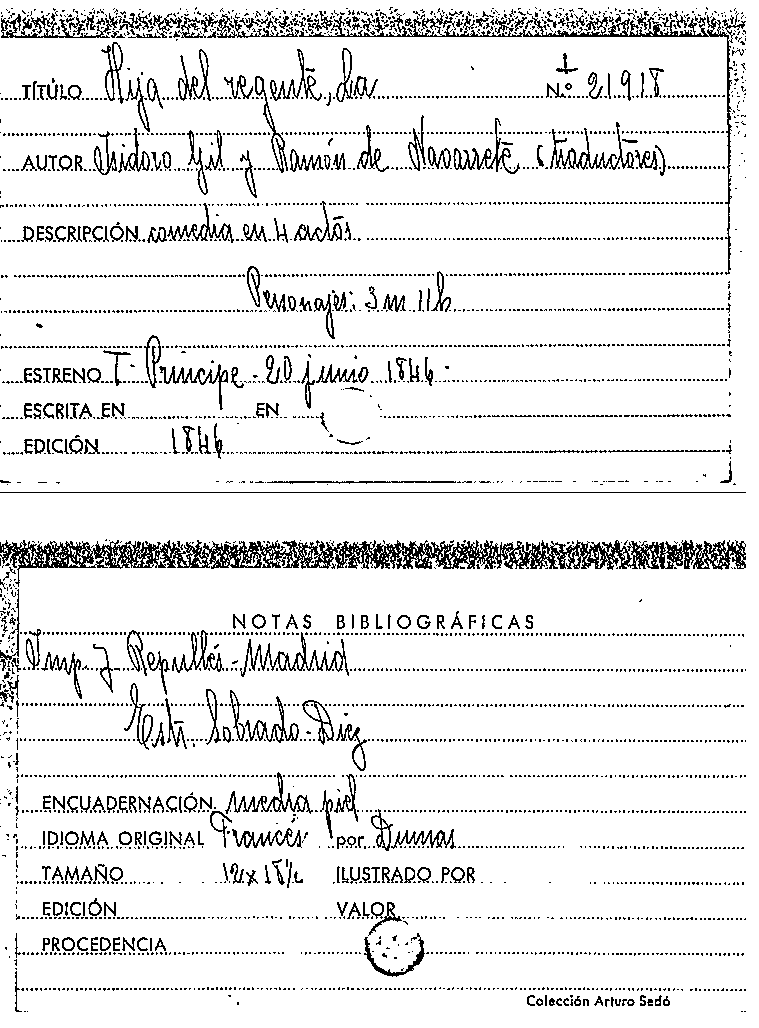 TÍTULO Hija del regente, La 1
N.º 21918
AUTOR Isidoro Gil y Ramón de Navarrete (traductores)
DESCRIPCIÓN comedia en 4 actos.
Personajes: 3 m 11 h
ESTRENO T. Príncipe - 20 junio 1846.
ESCRITA EN EN
EDICIÓN 1846
NOTAS BIBLIOGRÁFICAS
Imp. J Repullés - Madrid
Estr. Sobrado - Diez
ENCUADERNACIÓN media piel
IDIOMA ORIGINAL Francés por Dumas
TAMAÑO 12 x 18½ ILUSTRADO POR
EDICIÓN VALOR
PROCEDENCIA
Colección Arturo Sedó